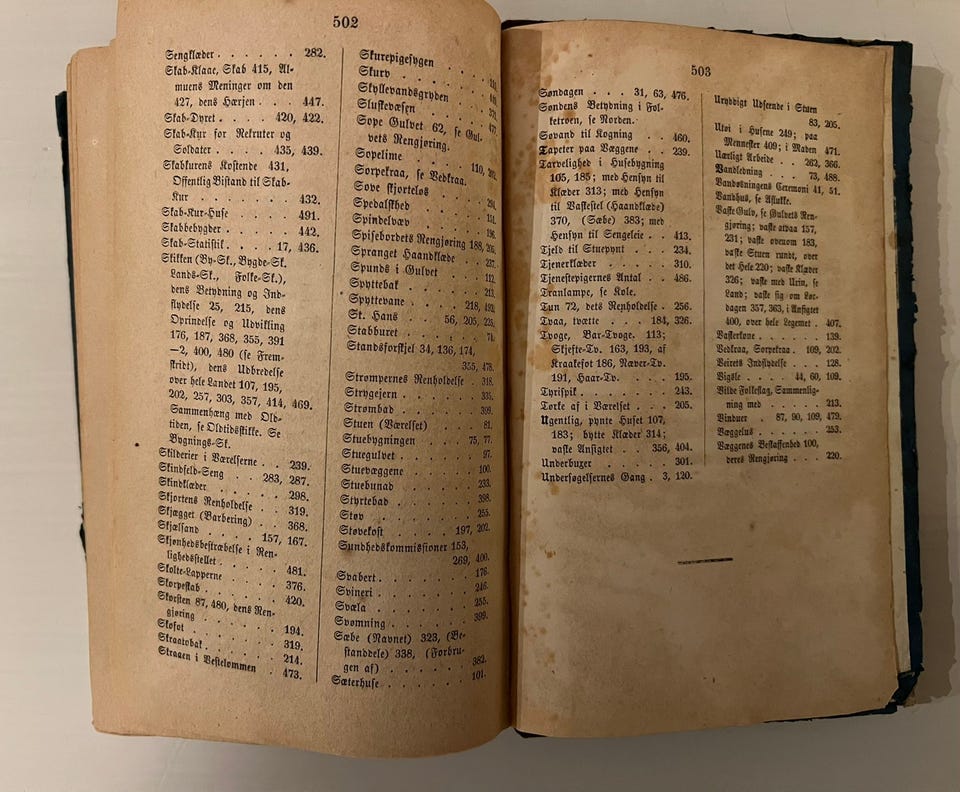 502
Sengklæder . . . . . . . 282.
Skab-Klaae, Skab 415, Al-
muens Meninger om den
427, dens Hærjen . . . 447.
Skab-Dyret . . . . 420, 422.
Skab-Kur for Rekruter og
Soldater . . . . . 435, 439.
Skabkurens Kostende 431,
Offentlig Bistand til Skab-
Kur . . . . . . . . . 432.
Skab-Kur-Huse . . . . . 491.
Skabbebygder . . . . . . 442.
Skab-Statistik . . . . 17, 436.
Skikken (By-Sk., Bygde-Sk.
Lands-Sk., Folke-Sk.),
dens Betydning og Ind-
flydelse 25, 215, dens
Oprindelse og Udvikling
176, 187, 368, 355, 391
—2, 400, 480 (se Frem-
skridt), dens Udbredelse
over hele Landet 107, 195,
202, 257, 303, 357, 414, 469.
Sammenhæng med Old-
tiden, se Oldtidsskikke. Se
Bygnings-Sk.
Skilderier i Værelserne . . 239.
Skindfeld-Seng . . . 283, 287.
Skindklæder . . . . . . 298.
Skjortens Renholdelse . . 319.
Skjægget (Barbering) . . 368.
Skjælsand . . . . . 157, 167.
Skjønhedsbestræbelse i Ren-
lighedsstellet . . . . . . 481.
Skolte-Lapperne . . . . . 376.
Skorpeskab . . . . . . . 420.
Skorsten 87, 480, dens Ren-
gjøring . . . . . . . . 194.
Skofot . . . . . . . . . 319.
Skraatobak . . . . . . . 214.
Skraaen i Vestelommen . . 473.
Skurepigesygen
Skurv
Skyllevandsgryden
Sluskevæsen
Sope Gulvet 62, se Gul-
vets Rengjøring.
Sopelime . . . . . . 110,
Sorpekraa, se Vedkraa.
Sove skjorteløs
Spedalskhed
Spindelvæv . . . . . . . 196.
Spisebordets Rengjøring 188,
Spranget Haandklæde . . 237.
Spunds i Gulvet . . . . . 112.
Spyttebak . . . . . . . . 213.
Spyttevane . . . . . 218,
St. Hans . . . . 56, 205,
Stabburet . . . . . . . .
Standsforskjel 34, 136, 174,
355, 478.
Strømpernes Renholdelse . 318.
Strygejern . . . . . . . 335.
Strømbad . . . . . . . . 309.
Stuen (Værelset) . . . . 81.
Stuebygningen . . . . 75, 77.
Stuegulvet . . . . . . . 97.
Stuevæggene . . . . . . 100.
Stuebunad . . . . . . . 233.
Styrtebad . . . . . . . 398.
Støv . . . . . . . . . . 255.
Støvekost . . . . . 197, 202.
Sundhedskommissioner 153,
269, 400.
Svabert . . . . . . . . . 176.
Svineri . . . . . . . . . 246.
Svæla . . . . . . . . . . 255.
Svømning . . . . . . . . 399.
Sæbe (Navnet) 323, (Be-
standdele) 338, (Forbru-
gen af) . . . . . . . . 382.
Sæterhuse . . . . . . . . 101.
503
Søndagen . . . 31, 63, 476.
Søndens Betydning i Fol-
ketroen, se Norden.
Søvand til Kogning . . 460.
Tapeter paa Væggene . . 239.
Tarvelighed i Husebygning
105, 185; med Hensyn til
Klæder 313; med Hensyn
til Vaskestel (Haandklæde)
370, (Sæbe) 383; med
Hensyn til Sengeleie . . 413.
Tjeld til Stuepynt . . . 234.
Tjenerklæder . . . . . . 310.
Tjenestepigernes Antal . . 486.
Tranlampe, se Kole.
Tun 72, dets Renholdelse . 256.
Tvaa, tvætte . . . 184, 326.
Tvoge, Bar-Tvoge. 113;
Skjefte-Tv. 163, 193, af
Kraakefot 186, Næver-Tv.
191, Haar-Tv. . . . . 195.
Tyrispik . . . . . . . . 243.
Tørke af i Værelset . . . 205.
Ugentlig, pynte Huset 107,
183; bytte Klæder 314;
vaske Ansigtet . . 356, 404.
Underbuxer . . . . . . . 301.
Undersøgelsernes Gang . 3, 120.
Uryddigt Udseende i Stuen
83, 205.
Utøi i Husene 249; paa
Mennesker 409; i Maden 471.
Uærligt Arbeide . . 262, 366.
Vandledning . . . . 73, 488.
Vandøsningens Ceremoni 41, 51.
Vandhus, se Aflukke.
Vaske Gulv, se Gulvets Ren-
gjøring; vaske atvaa 157,
231; vaske ovenom 183,
vaske Stuen rundt, over
det Hele 220; vaske Klæder
326; vaske med Urin, se
Land; vaske sig om Lør-
dagen 357, 363, i Ansigtet
400, over hele Legemet . 407.
Vaskerkone . . . . . . . 139.
Vedkraa, Sorpekraa . 109, 202.
Veirets Indflydelse . . . 128.
Vigsle . . . . . 44, 60, 109.
Vilde Folkeslag, Sammenlig-
ning med . . . . . . . 213.
Vinduer . . 87, 90, 109, 479.
Væggelus . . . . . . . . 253.
Væggenes Beskaffenhed 100,
deres Rengjøring . . . 220.